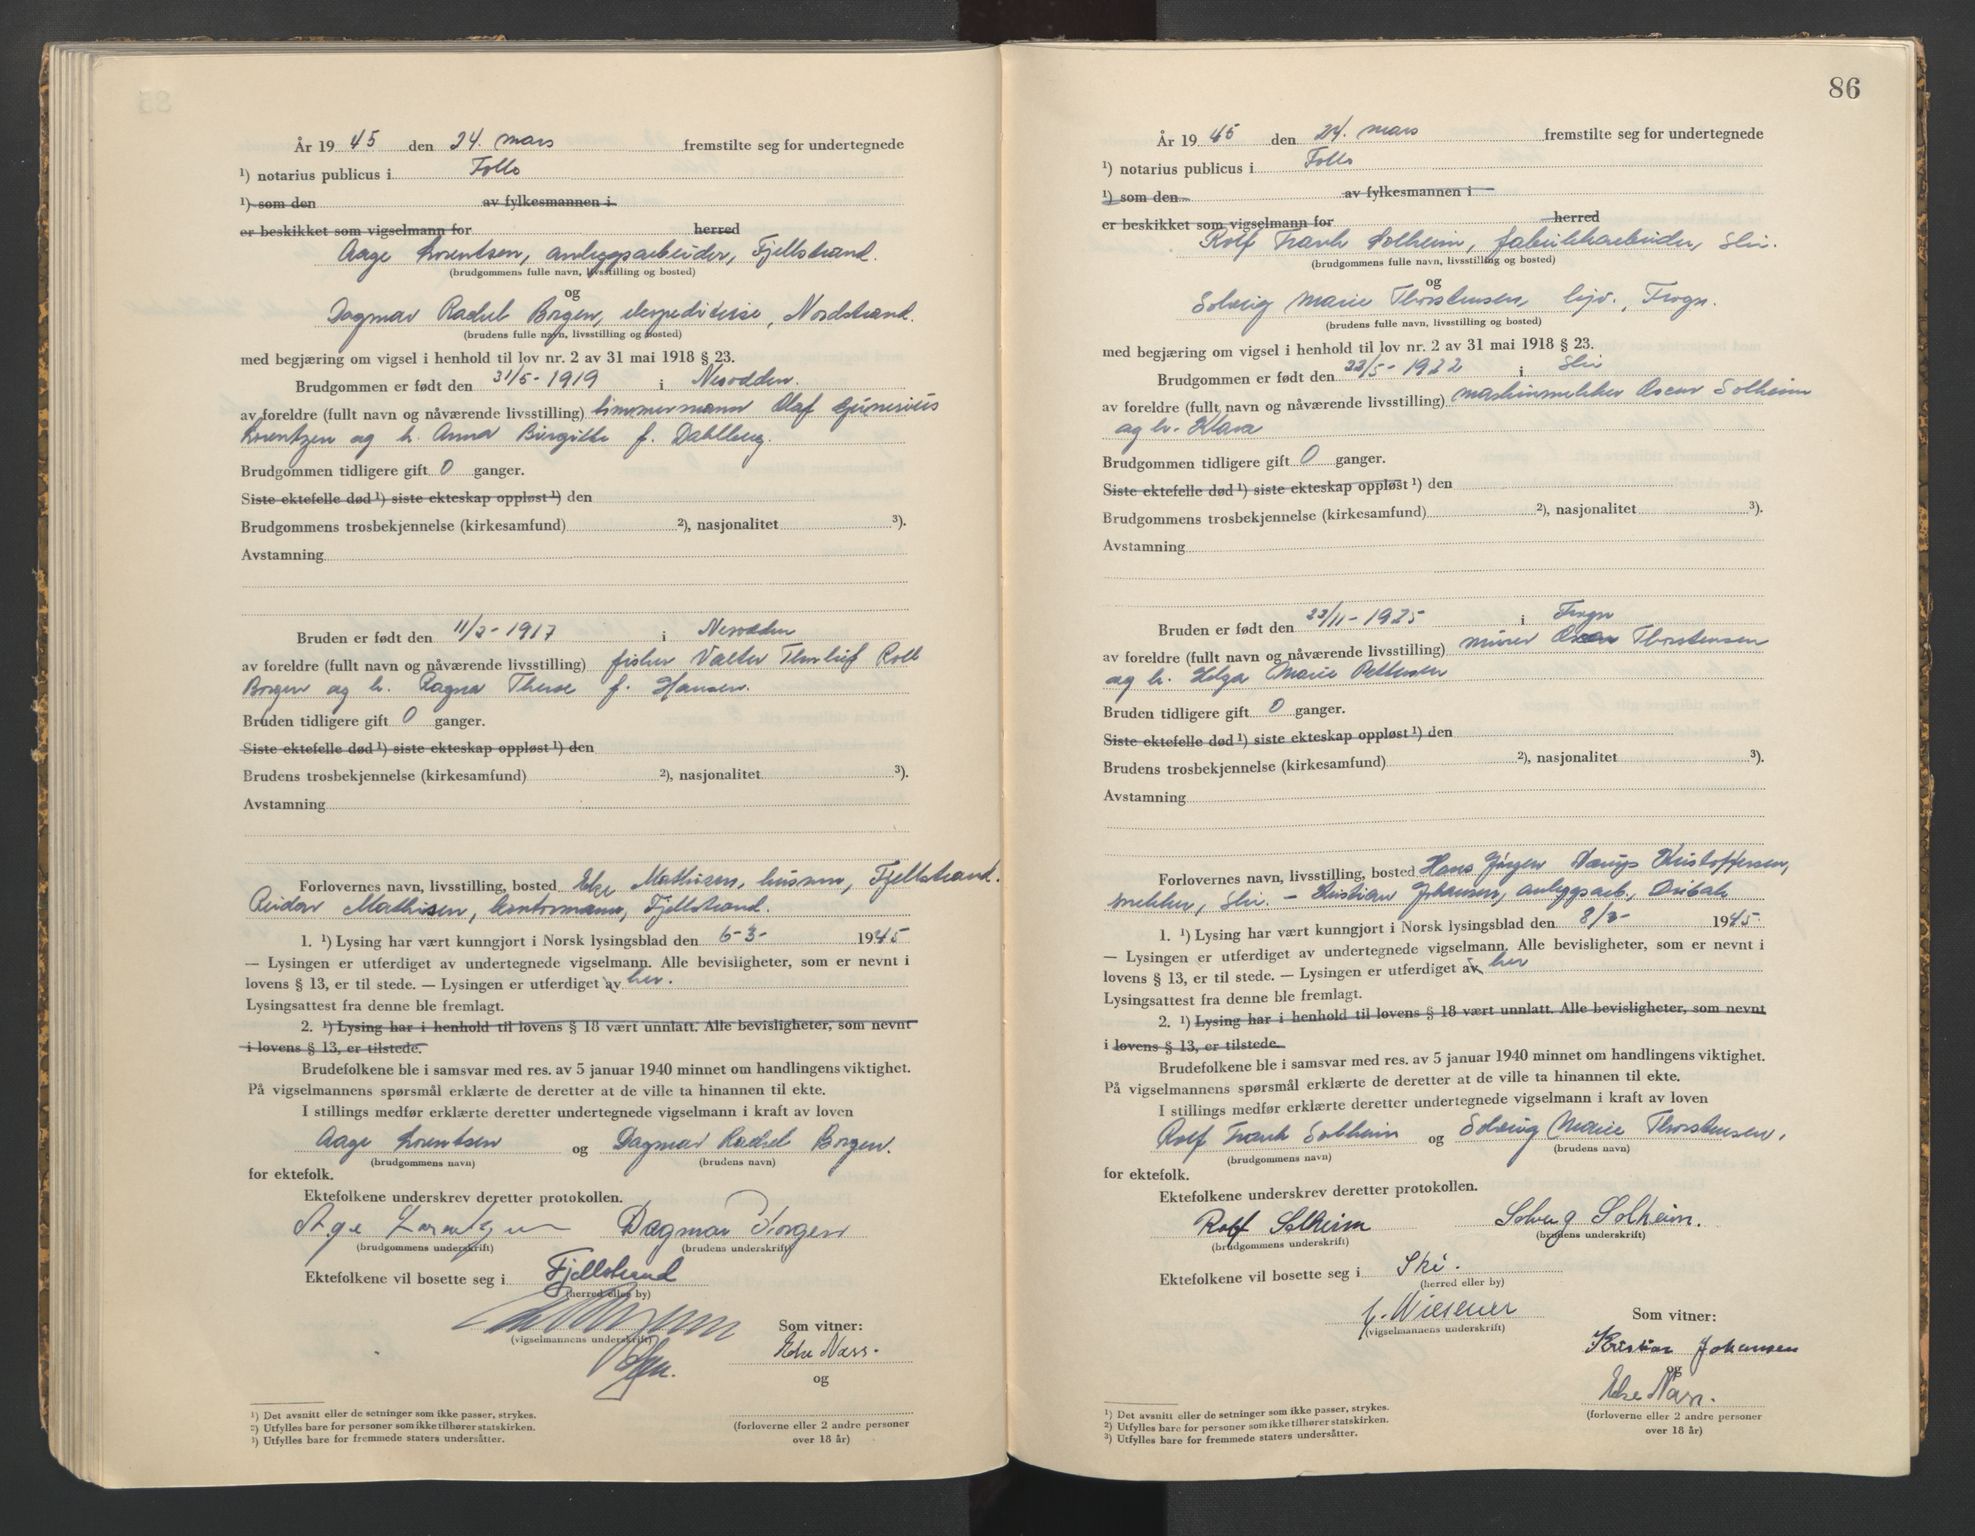 År 19 45 den 24. mars fremstilte seg for undertegnede
¹) notarius publicus i Follo
¹) som den av fylkesmannen i
er beskikket som vigselmann for herred
Aage Lorentsen, anleggsarbeider, Fjellstrand.
(brudgommens fulle navn, livsstilling og bosted)
og
Dagmar Rachel Borgen, ekspeditrise, Nordstrand.
(brudens fulle navn, livsstilling og bosted)
med begjæring om vigsel i henhold til lov nr. 2 av 31 mai 1918 § 23.
Brudgommen er født den 31/5-1919 i Nesodden.
av foreldre (fullt navn og nåværende livsstilling) tømmermann Olaf
Lorentzen og h. Anna Birgitte f. Dahlberg.
Brudgommen tidligere gift 0 ganger.
Siste ektefelle død ¹) siste ekteskap oppløst ¹) den
Brudgommens trosbekjennelse (kirkesamfund) ²), nasjonalitet ³).
Avstamning
Bruden er født den 11/2-1917 i Nesodden
av foreldre (fullt navn og nåværende livsstilling) fisker Valter Thorleif Roll
Borgen og h. Ragna Therese f. Hansen.
Bruden tidligere gift 0 ganger.
Siste ektefelle død ¹) siste ekteskap oppløst ¹) den
Brudens trosbekjennelse (kirkesamfund) ²), nasjonalitet ³).
Avstamning
Forlovernes navn, livsstilling, bosted Else Mathisen, husmor, Fjellstrand.
Reidar Mathisen, kontormann, Fjellstrand.
1. ¹) Lysing har vært kunngjort i Norsk lysingsblad den 6-3- 1945
— Lysingen er utferdiget av undertegnede vigselmann. Alle bevisligheter, som er nevnt i
lovens § 13, er til stede. — Lysingen er utferdiget av her.
Lysingsattest fra denne ble fremlagt.
2. ¹) Lysing har i henhold til lovens § 18 vært unnlatt. Alle bevisligheter, som nevnt
i lovens § 13, er tilstede.
Brudefolkene ble i samsvar med res. av 5 januar 1940 minnet om handlingens viktighet.
På vigselmannens spørsmål erklærte de deretter at de ville ta hinannen til ekte.
I stillings medfør erklærte deretter undertegnede vigselmann i kraft av loven
Aage Lorentsen og Dagmar Rachel Borgen.
(brudgommens navn) (brudens navn)
for ektefolk.
Ektefolkene underskrev deretter protokollen.
Åge Lorentzen Dagmar Borgen
(brudgommens underskrift) (brudens underskrift)
Ektefolkene vil bosette seg i Fjellstrand
(herred eller by)
(vigselmannens underskrift)
Som vitner:
Else Næss.
og
(forloverne eller 2 andre personer
over 18 år)
¹) Det avsnitt eller de setninger som ikke passer, strykes.
²) Utfylles bare for personer som ikke tilhører statskirken.
³) Utfylles bare for fremmede staters undersåtter.
86
År 19 45 den 24. mars fremstilte seg for undertegnede
¹) notarius publicus i Follo
¹) som den av fylkesmannen i
er beskikket som vigselmann for herred
Rolf Frank Solheim, fabrikkarbeider, Ski.
(brudgommens fulle navn, livsstilling og bosted)
og
Solveig Marie Thorstensen, hjv., Frogn.
(brudens fulle navn, livsstilling og bosted)
med begjæring om vigsel i henhold til lov nr. 2 av 31 mai 1918 § 23.
Brudgommen er født den 22/5-1922 i Ski
av foreldre (fullt navn og nåværende livsstilling) maskinmekker Oscar Solheim
og h. Klara
Brudgommen tidligere gift 0 ganger.
Siste ektefelle død ¹) siste ekteskap oppløst ¹) den
Brudgommens trosbekjennelse (kirkesamfund) ²), nasjonalitet ³).
Avstamning
Bruden er født den 22/11-1925 i Frogn
av foreldre (fullt navn og nåværende livsstilling) murer Oscar Thorstensen
og h. Helga Marie Pettersen
Bruden tidligere gift 0 ganger.
Siste ektefelle død ¹) siste ekteskap oppløst ¹) den
Brudens trosbekjennelse (kirkesamfund) ²), nasjonalitet ³).
Avstamning
Forlovernes navn, livsstilling, bosted Hans Jørgen Kristoffersen,
mekker, Ski. – Kristian Johansen, anleggsarb., Drøbak
1. ¹) Lysing har vært kunngjort i Norsk lysingsblad den 8/3- 1945.
— Lysingen er utferdiget av undertegnede vigselmann. Alle bevisligheter, som er nevnt i
lovens § 13, er til stede. — Lysingen er utferdiget av her
Lysingsattest fra denne ble fremlagt.
2. ¹) Lysing har i henhold til lovens § 18 vært unnlatt. Alle bevisligheter, som nevnt
i lovens § 13, er tilstede.
Brudefolkene ble i samsvar med res. av 5 januar 1940 minnet om handlingens viktighet.
På vigselmannens spørsmål erklærte de deretter at de ville ta hinannen til ekte.
I stillings medfør erklærte deretter undertegnede vigselmann i kraft av loven
Rolf Frank Solheim og Solveig Marie Thorstensen,
(brudgommens navn) (brudens navn)
for ektefolk.
Ektefolkene underskrev deretter protokollen.
Rolf Solheim Solveig Solheim.
(brudgommens underskrift) (brudens underskrift)
Ektefolkene vil bosette seg i Ski.
(herred eller by)
Wiesener
(vigselmannens underskrift)
Som vitner:
Kristian Johansen
og
Else Næss.
(forloverne eller 2 andre personer
over 18 år)
¹) Det avsnitt eller de setninger som ikke passer, strykes.
²) Utfylles bare for personer som ikke tilhører statskirken.
³) Utfylles bare for fremmede staters undersåtter.